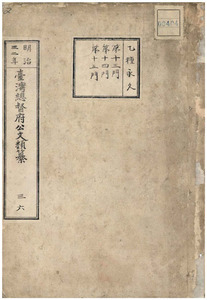 乙種永久
第十三門
第十四門
第十五門
明治
三二年
臺灣總督府公文類纂
三六